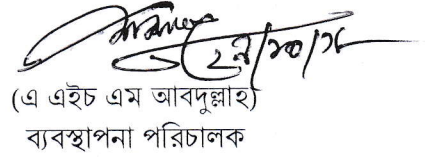 ২৯/১০/১৮
(এ এইচ এম আবদুল্লাহ)
ব্যবস্থাপনা পরিচালক